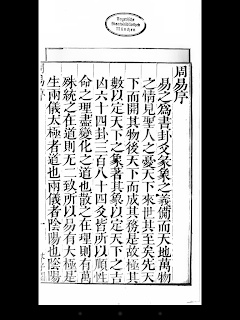 Bayerische
Staatsbibliothek
München
周易序
易之為書卦爻彖象之義備而天地萬物
之情見聖人之憂天下來世其至矣先天
下而開其物後天下而成其務是故極其
數以定天下之象著其象以定天下之吉
凶六十四卦三百八十四爻皆所以順性
命之理盡變化之道也散之在理則有萬
殊統之在道則无二致所以易有太極是
生兩儀太極者道也兩儀者陰陽也陰陽